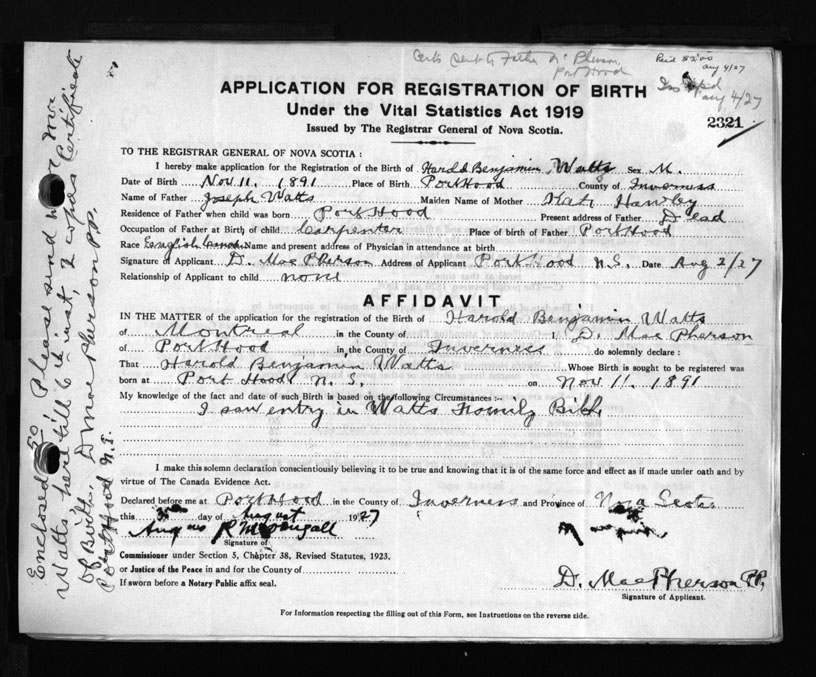 Certs Sent to Father McPherson,
Port Hood
Aug 4/27
Aug 4/27
APPLICATION FOR REGISTRATION OF BIRTH
Under the Vital Statistics Act 1919
Issued by The Registrar General of Nova Scotia.
2321
TO THE REGISTRAR GENERAL OF NOVA SCOTIA :
I hereby make application for the Registration of the Birth of Harold Benjamin Watts Sex M.
Date of Birth Nov 11. 1891 Place of Birth Port Hood County of Inverness
Name of Father Joseph Watts Maiden Name of Mother Hawley
Residence of Father when child was born Port Hood Present address of Father Dead
Occupation of Father at Birth of child Carpenter Place of birth of Father Port Hood
Race English Name and present address of Physician in attendance at birth
Signature of Applicant D. MacPherson Address of Applicant Port Hood N.S. Date Aug 2/27
Relationship of Applicant to child none
AFFIDAVIT
IN THE MATTER of the application for the registration of the Birth of Harold Benjamin Watts
of Montreal in the County of I, D. MacPherson
of Port Hood in the County of Inverness do solemnly declare :
That Harold Benjamin Watts Whose Birth is sought to be registered was
born at Port Hood N. S. on Nov 11. 1891
My knowledge of the fact and date of such Birth is based on the following Circumstances :-
I saw entry in Watts Family Bible
I make this solemn declaration conscientiously believing it to be true and knowing that it is of the same force and effect as if made under oath and by
virtue of The Canada Evidence Act.
Declared before me at Port Hood in the County of Inverness and Province of Nova Scotia
this day of August 1927
Angus R McDougall
Signature of
Commissioner under Section 5, Chapter 38, Revised Statutes, 1923,
or Justice of the Peace in and for the County of
If sworn before a Notary Public affix seal.
D. MacPherson P.P.
Signature of Applicant.
For Information respecting the filling out of this Form, see Instructions on the reverse side.
Enclosed 50¢. Please send
Watts here till 6th inst, 2 copies Certificate
of Birth. D MacPherson P.P.
Port Hood N.S.